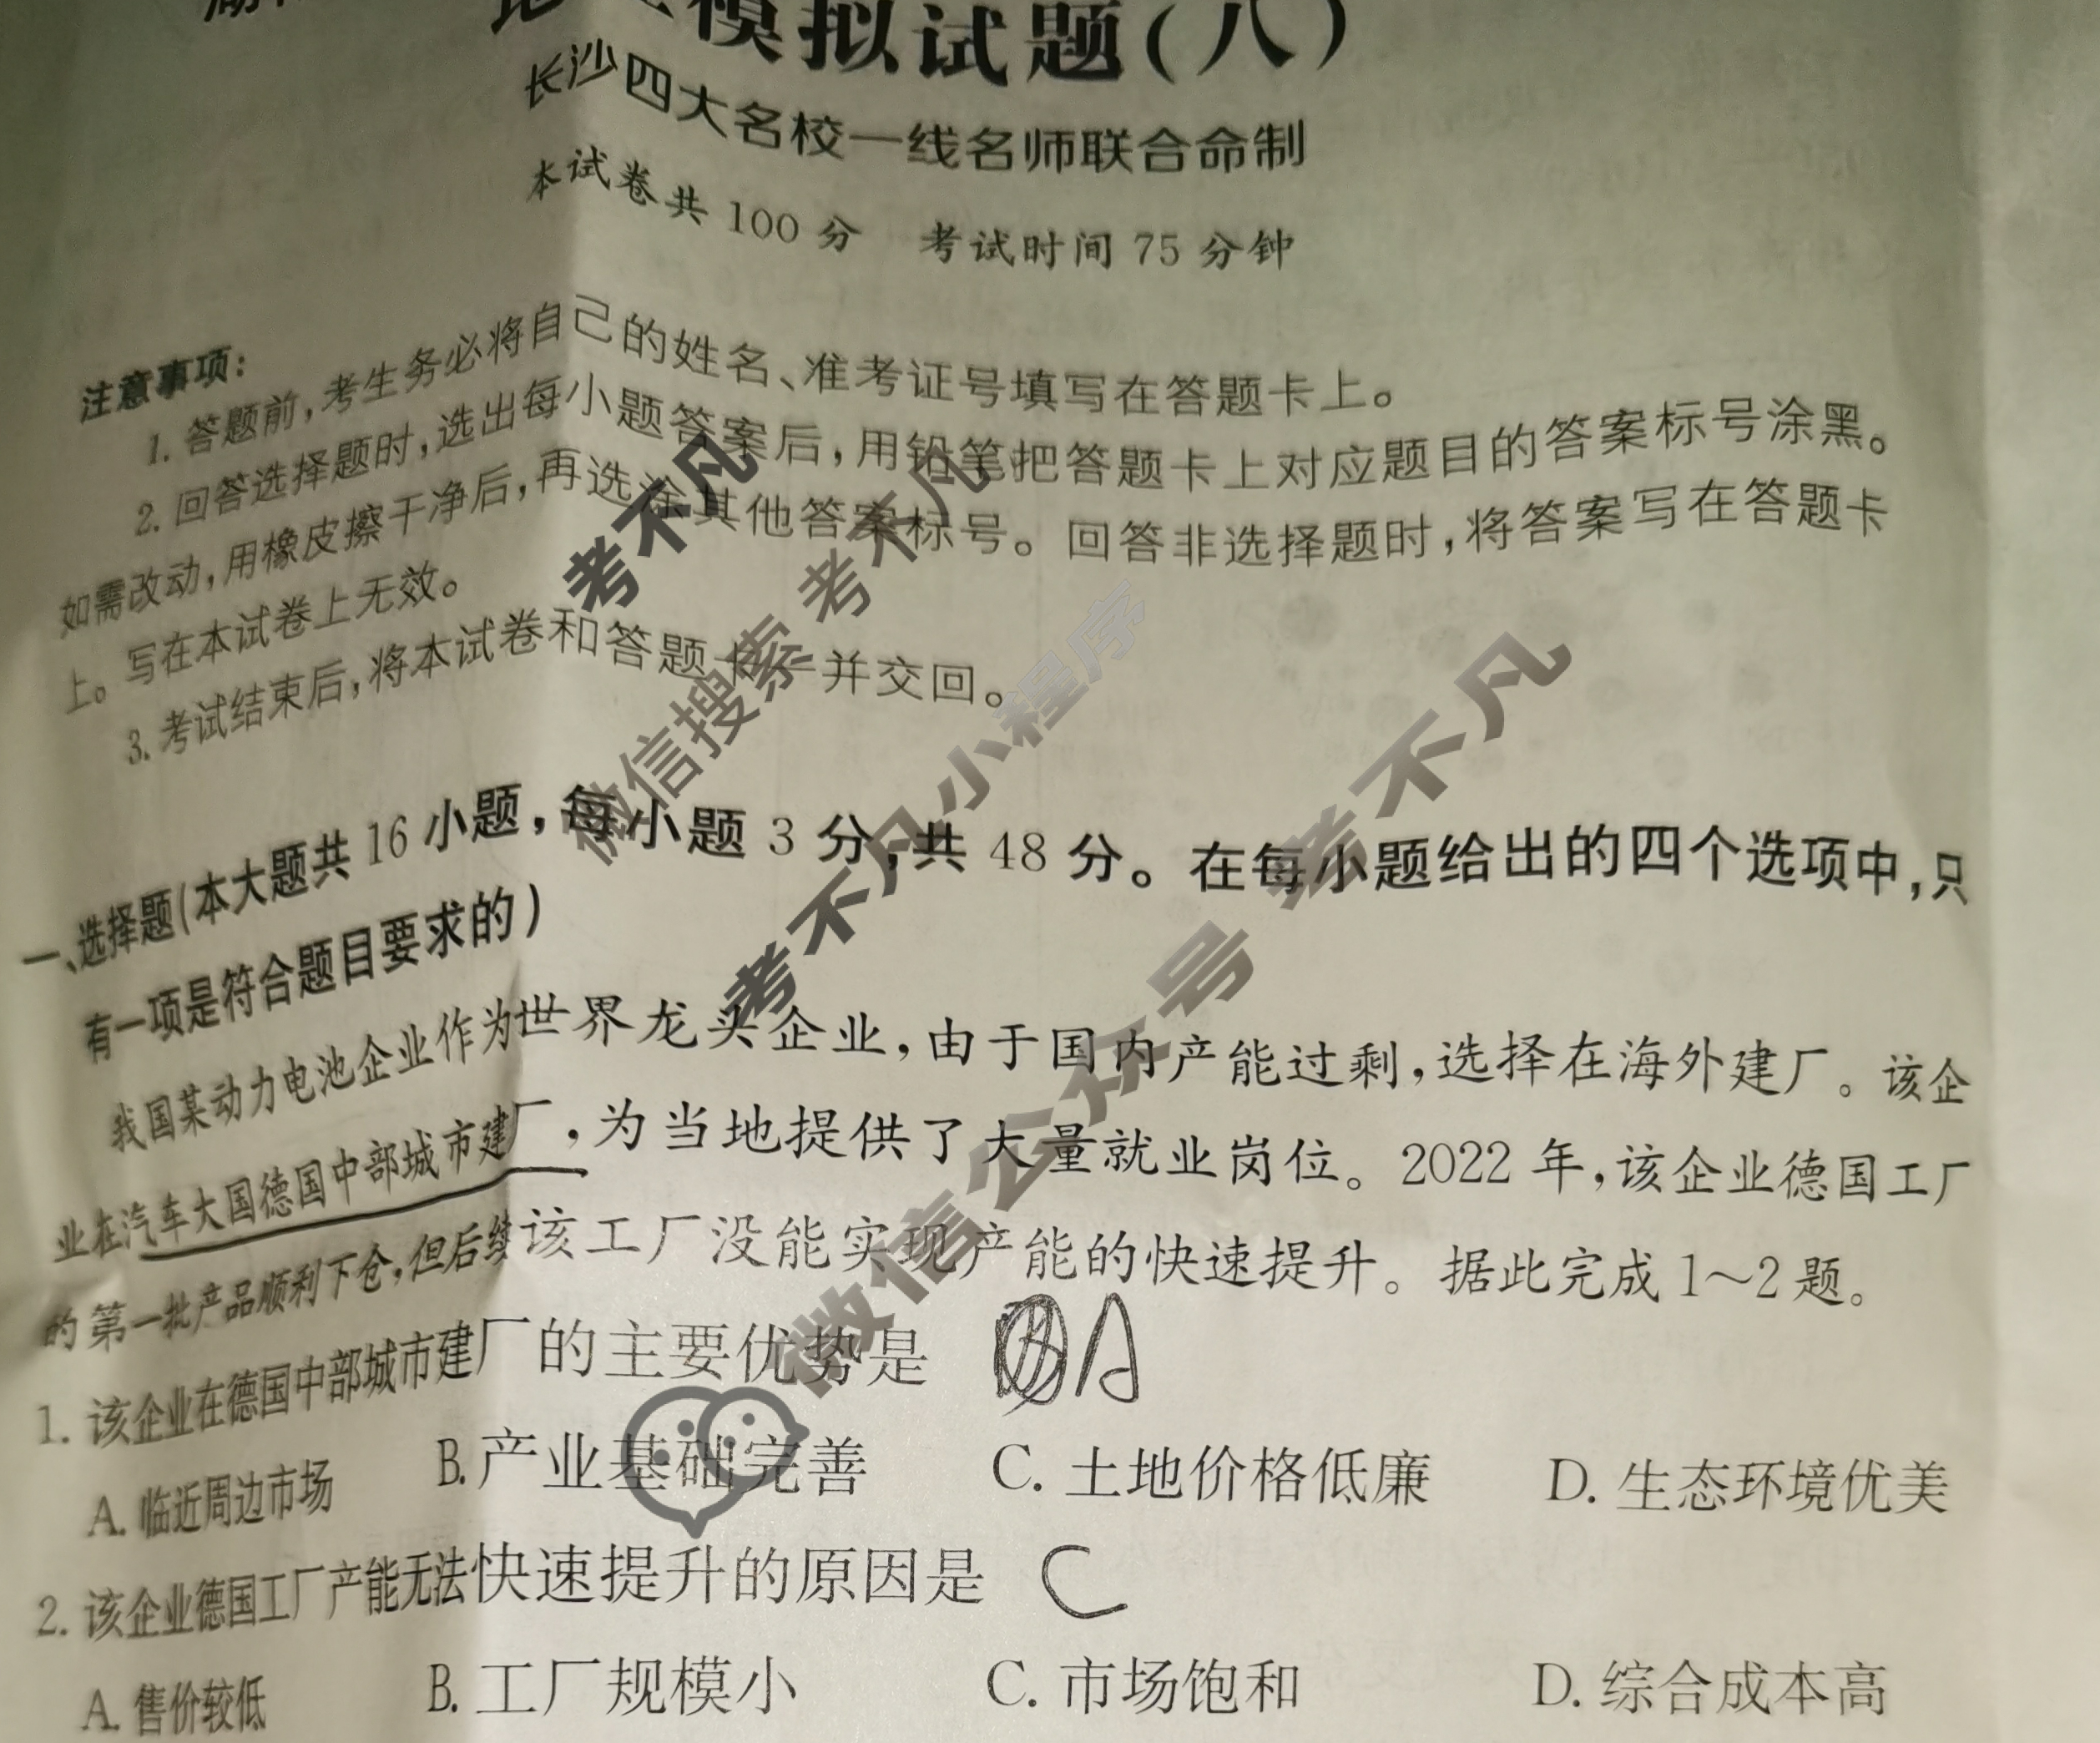 模拟试题(八)
长沙四大名校一线名师联合命制
本试卷共 100 分 考试时间 75 分钟
注意事项:
1. 答题前,考生务必将自己的姓名、准考证号填写在答题卡上。
2. 回答选择题时,选出每小题答案后,用铅笔把答题卡上对应题目的答案标号涂黑。
如需改动,用橡皮擦干净后,再选涂其他答案标号。回答非选择题时,将答案写在答题卡
上。写在本试卷上无效。
3. 考试结束后,将本试卷和答题卡一并交回。
一、选择题(本大题共 16 小题,每小题 3 分,共 48 分。在每小题给出的四个选项中,只
有一项是符合题目要求的)
我国某动力电池企业作为世界龙头企业,由于国内产能过剩,选择在海外建厂。该企
业在汽车大国德国中部城市建厂,为当地提供了大量就业岗位。2022 年,该企业德国工厂
的第一批产品顺利下仓,但后续该工厂没能实现产能的快速提升。据此完成 1~2 题。
1. 该企业在德国中部城市建厂的主要优势是 A
A. 临近周边市场 B. 产业基础完善 C. 土地价格低廉 D. 生态环境优美
2. 该企业德国工厂产能无法快速提升的原因是 C
A. 售价较低 B. 工厂规模小 C. 市场饱和 D. 综合成本高
考不凡
微信搜索 考不凡
考不凡小程序
微信公众号 考不凡